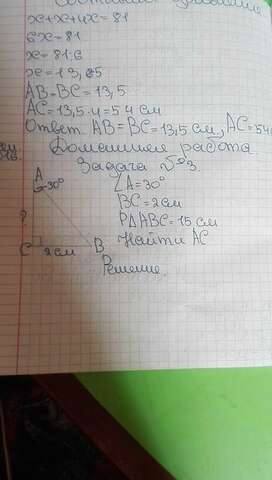 x+x+4x=81
6x=81
x=81:6
x=13,5
AB=BC=13,5
AC=13,5·4=54 см
Ответ AB=BC=13,5 см, AC=54
Домашняя работа.
Задача №3
A
30°
?
C 2см B
∠A=30°
BC=2см
P△ABC=15см
Найти AC
Решение.